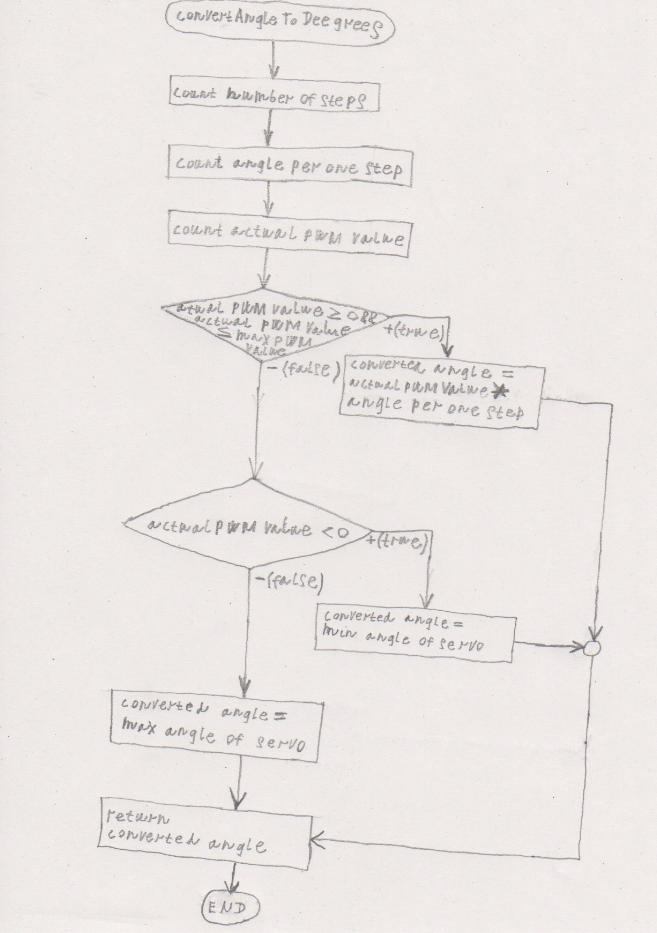 convertAngleToDeegrees
count number of steps
count angle per one step
count actual PWM value
atual PWM value ≥ 0&&
actual PWM value
≤ max PWM
value
+(true)
-(false)
converted angle =
actual PWM value *
angle per one step
actual PWM value <0
+(true)
-(false)
converted angle =
min angle of servo
converted angle =
max angle of servo
return
converted angle
END